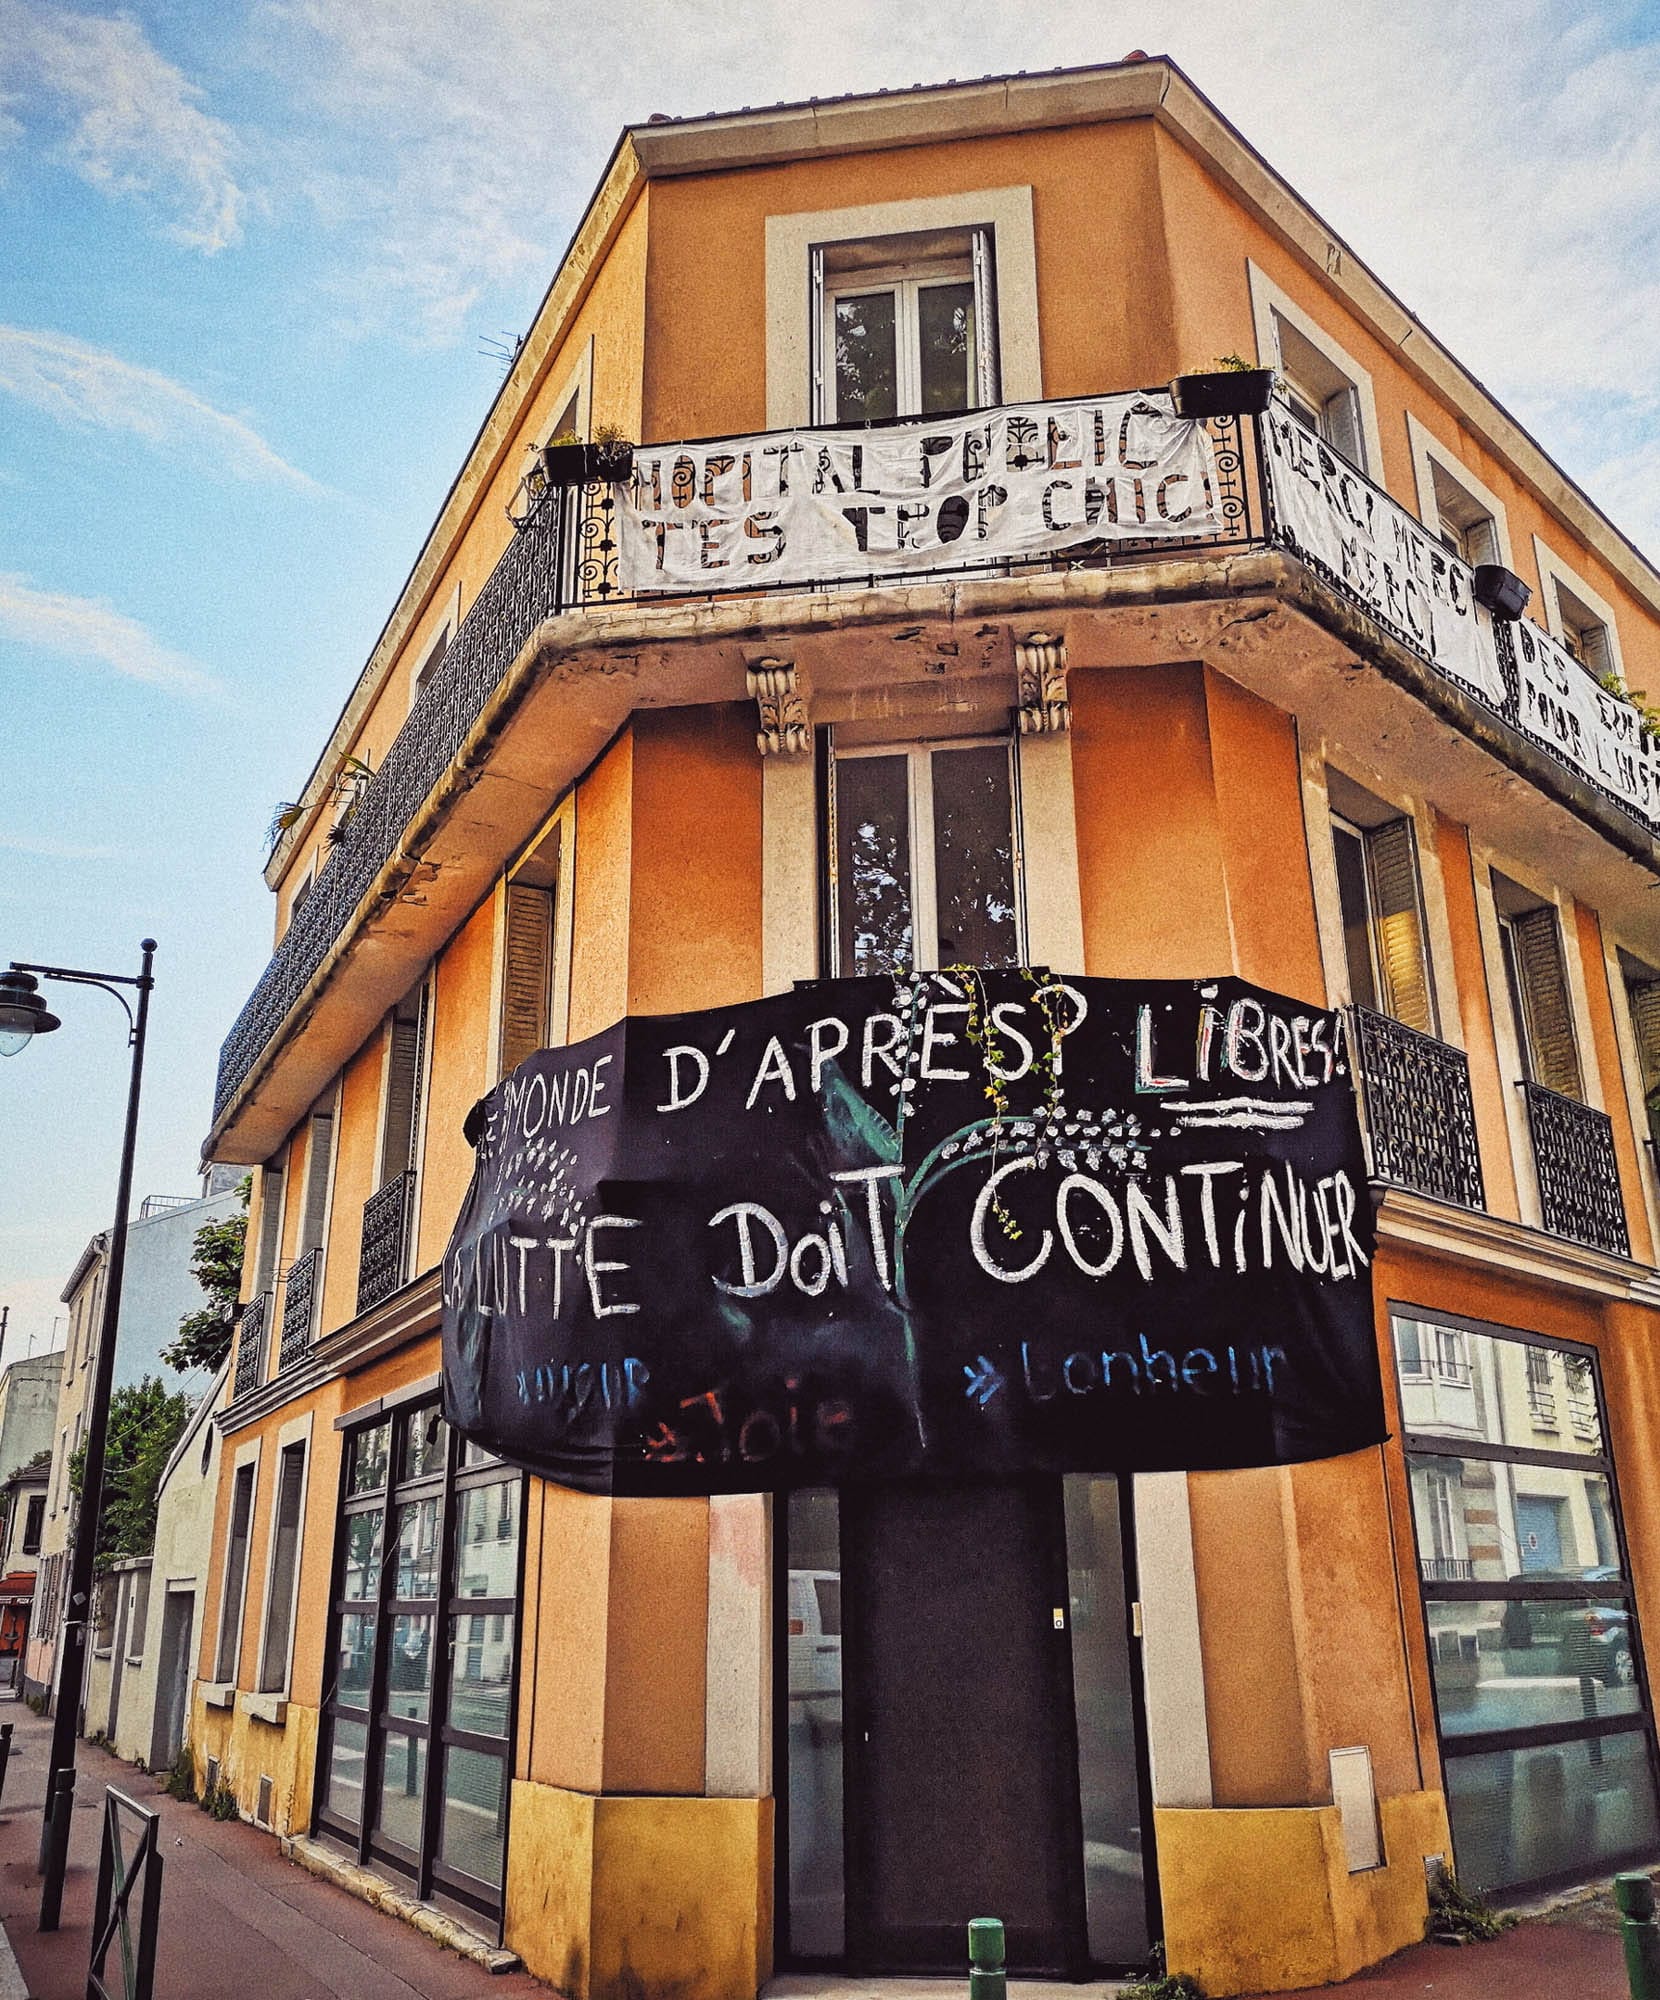 HOPITAL PUBLIC
T'ES TROP CHIC!
MERCI MERCI
MERCI
DES
POUR L'HIST
LE MONDE D'APRÈS? LIBRES!
LA LUTTE DOiT CONTiNUER
» Joie
» bonheur